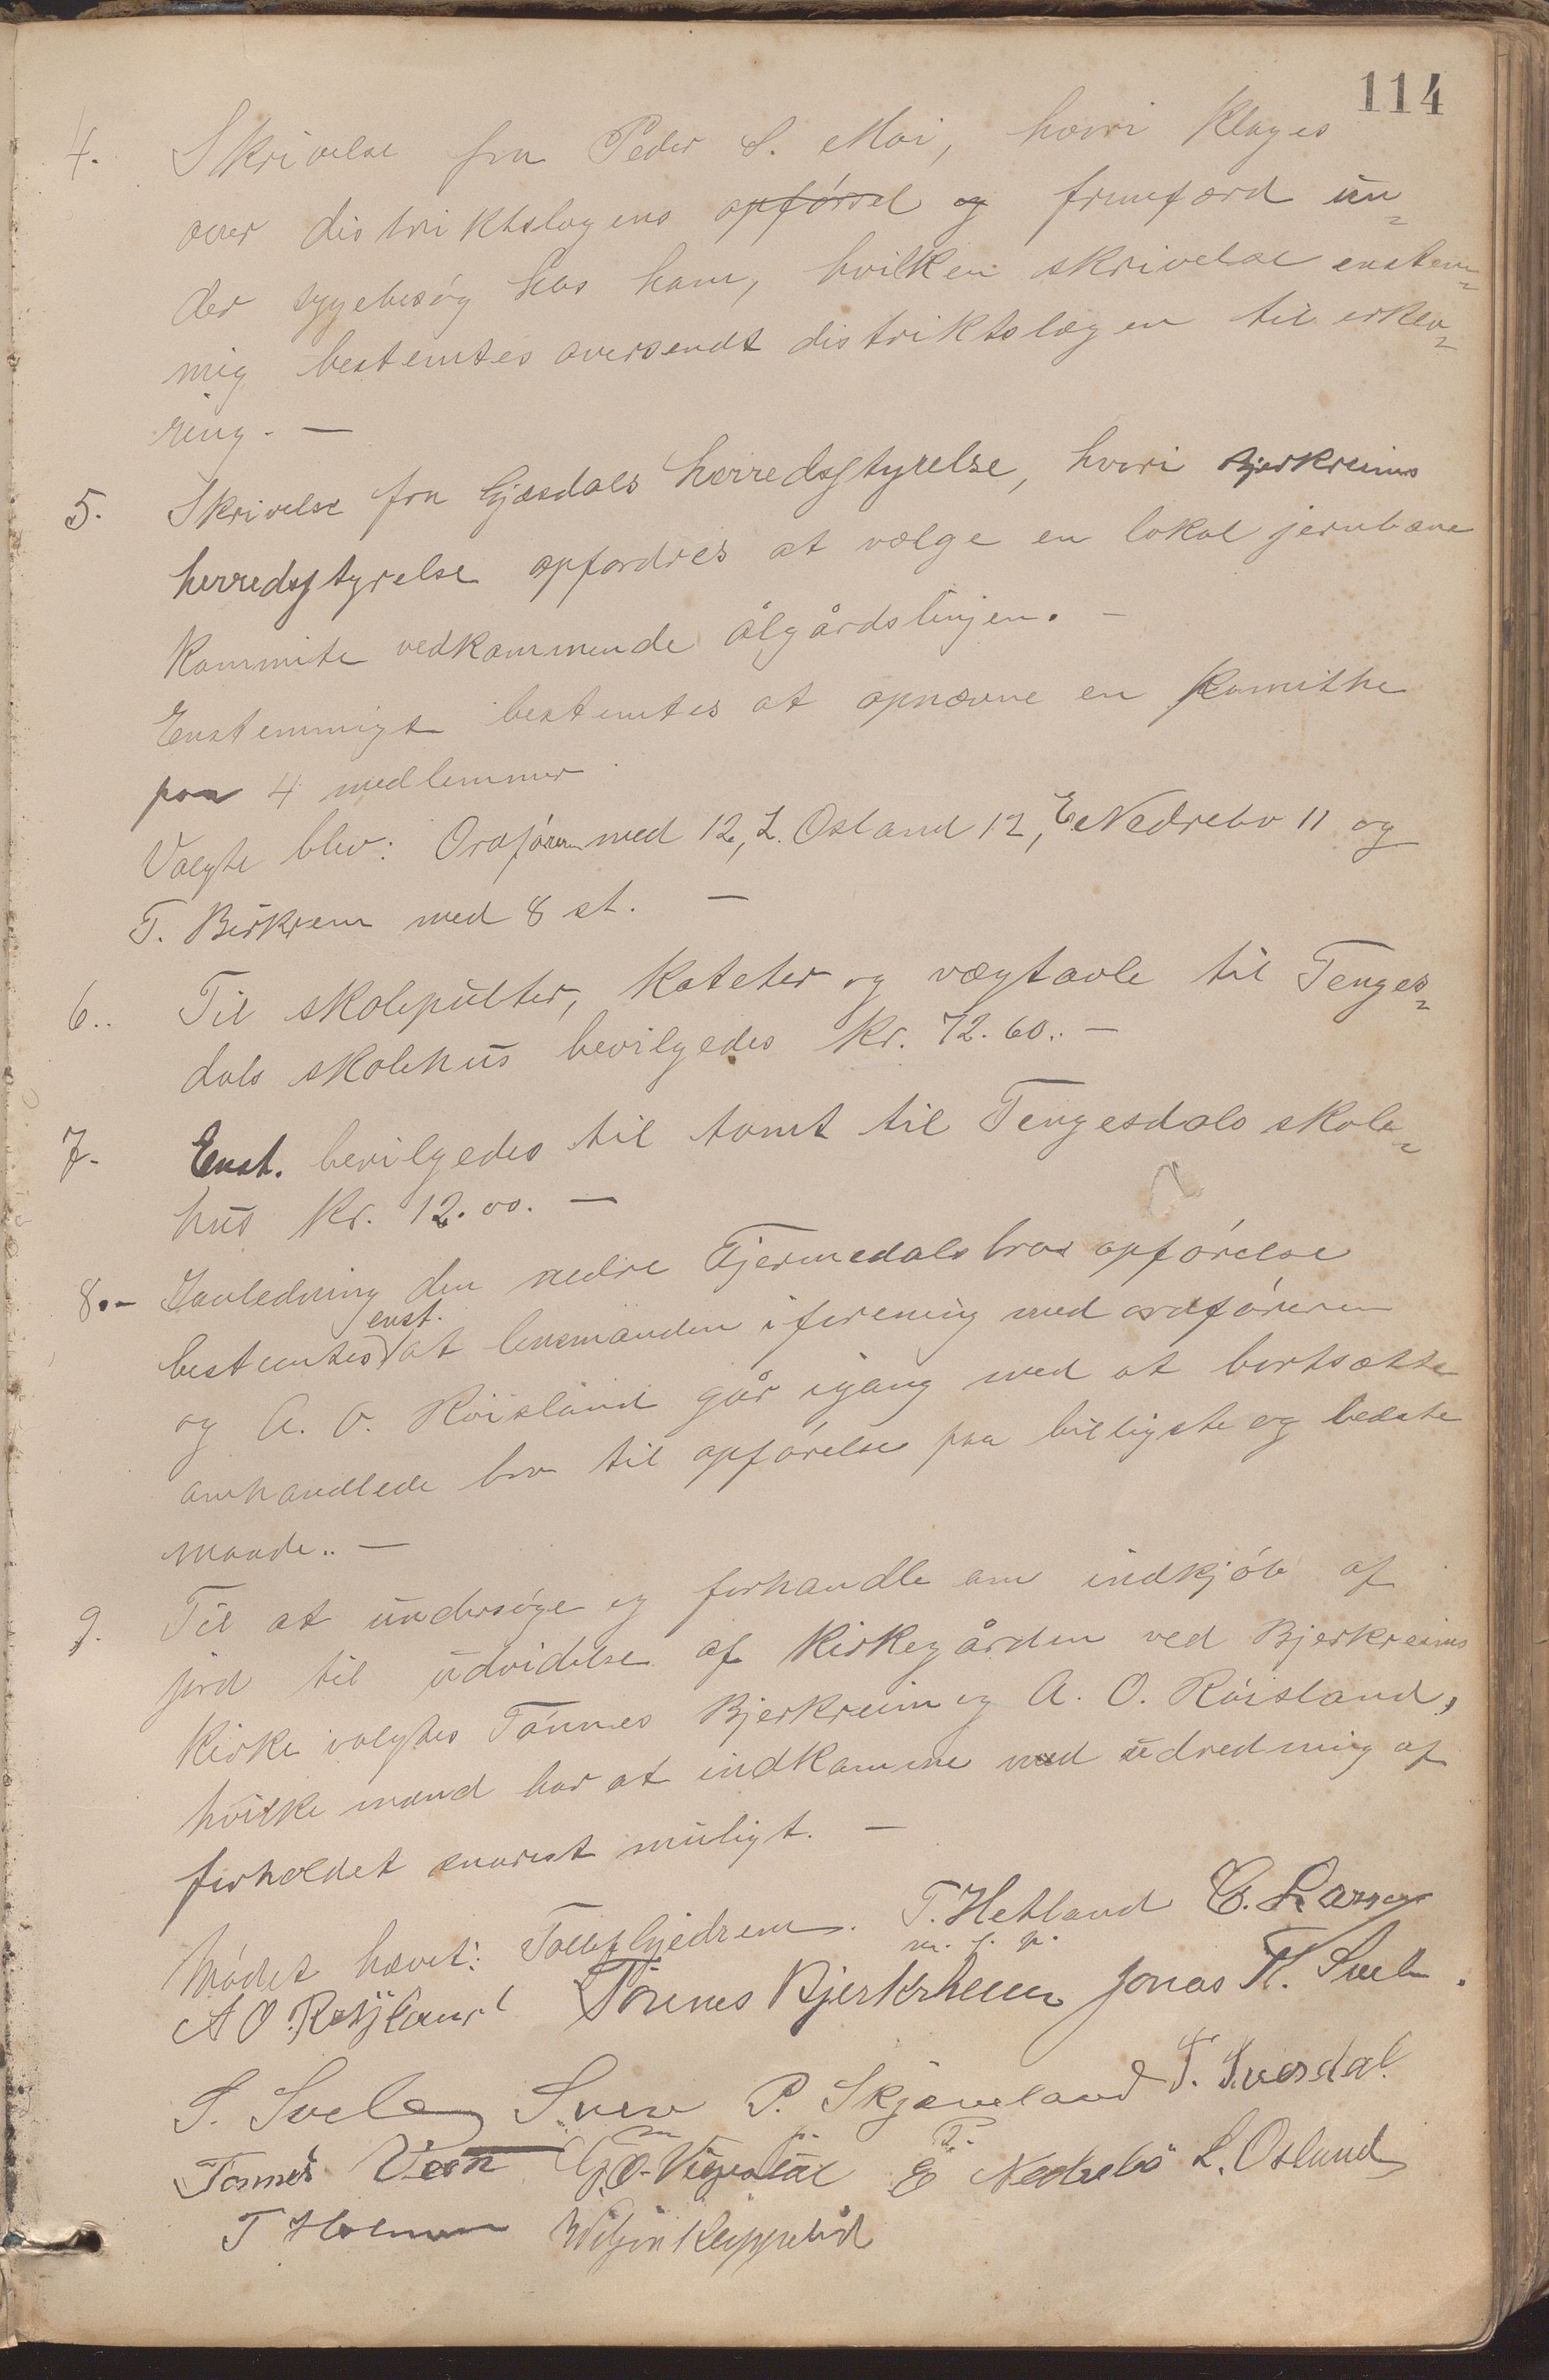 114
4. Skrivelse fra Peder S. Moi, hvori klages
over distriktslægens opförsel og fremfærd un-
der sygebesög hos ham, hvilken skrivelse enstem-
mig bestemtes oversendt distriktslægen til erklæ-
ring. —
5. Skrivelse fra Gjesdals herredsstyrelse, hvori Bjerkreims
herredsstyrelse opfordres at vælge en lokal jernbane
kommite vedkommende ålgårdslinjen. —
Enstemmigt bestemtes at opnævne en komithe
paa 4 medlemmer
Valgte blev: Ordföreren med 12, L. Osland 12, E Nedrebø 11 og
T. Birkrem med 8 st. —
6.. Til skolepulter, kateter og vægtavle til Tenges-
dals skolehus bevilgedes kr. 72.60. —
7. Enst. bevilgedes til tomt til Tengesdals skole-
hus kr. 12.00. —
8.- Ianledning den nedre Tjermedalsbros opförelse
enst.
bestemtes at lensmanden i forening med ordföreren
og A. O. Röisland går igang med at bortsætte
omhandlede bro til opförelse paa billigste og bedste
maade.. —
9. Til at undersöge og forhandle om indkjöb af
jord til udvidelse af kirkegården ved Bjerkreims
kirke valgtes Tönnes Bjerkreim og A. O. Röisland,
hvilke mænd har at indkomme med udredning af
forholdet snarest muligt. —
Mödet hævet: Gjedrem. T. Hetland
m. f. p.
A O Röysland Tönnes Bjerkrheim Jonas K. Svela.
S. Svela Sven P. Skjæveland T. Ivesdal.
Tönnes G. O. E Nedrebö L. Osland
T